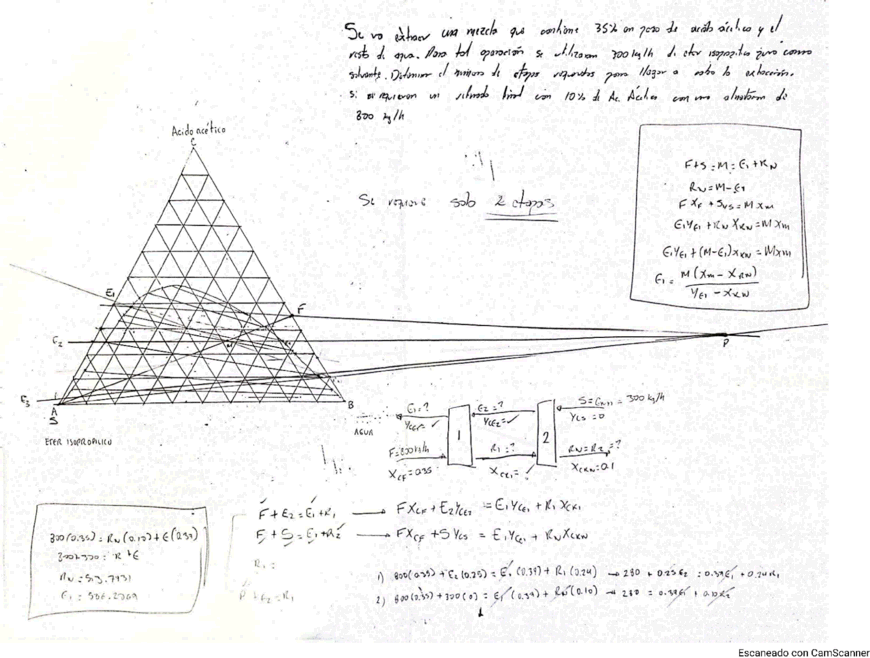 Se va extraer una mezcla que contiene 35% en peso de acido acetico y el
resto de agua. Para tal operación se utilizaran 300 kg/h de eter isopropilico puro como
solvente. Determinar el numero de etapas requeridas para llegar a cabo la extracción.
Si se requieren un refinado final con 10% de Ac. Acetico con una alimentación de
800 kg/h
Acido acético
C
Se requiere solo 2 etapas
F+S=M=E1+RN
RN=M-E1
F XF + SYS = M XM
E1YE1 + RN XRN = M XM
E1YE1 + (M-E1)XRN = M XM
E1 = M(XM - XRN)
YE1 - XRN
E1
F
E2
P
E3
A
S
B
AGUA
ETER ISOPROPILICO
E1=?
E2=?
S=EN+1 = 300 kg/h
YCE1= ✓
YCE2= ✓
YCS=0
1
2
F=800 kg/h
R1=?
RN=R2=?
XCF=0.35
XCR1= ✓
XCRN=0.1
800(0.35)=RN(0.10)+E(0.39)
800+300=R+E
RN=513.7931
E1=586.2069
F+E2=E1+R1 → FXCF+E2YCE2 = E1YCE1+R1XCR1
F+S=E1+R2 → FXCF+SYCS = E1YCE1+RNXCRN
R1=
1) 800(0.35)+E2(0.25)=E1(0.39)+R1(0.24) → 280+0.25E2=0.39E1+0.24R1
2) 800(0.35)+300(0)=E1(0.39)+RN(0.10) → 280=0.39E1+0.10R2
Escaneado con CamScanner